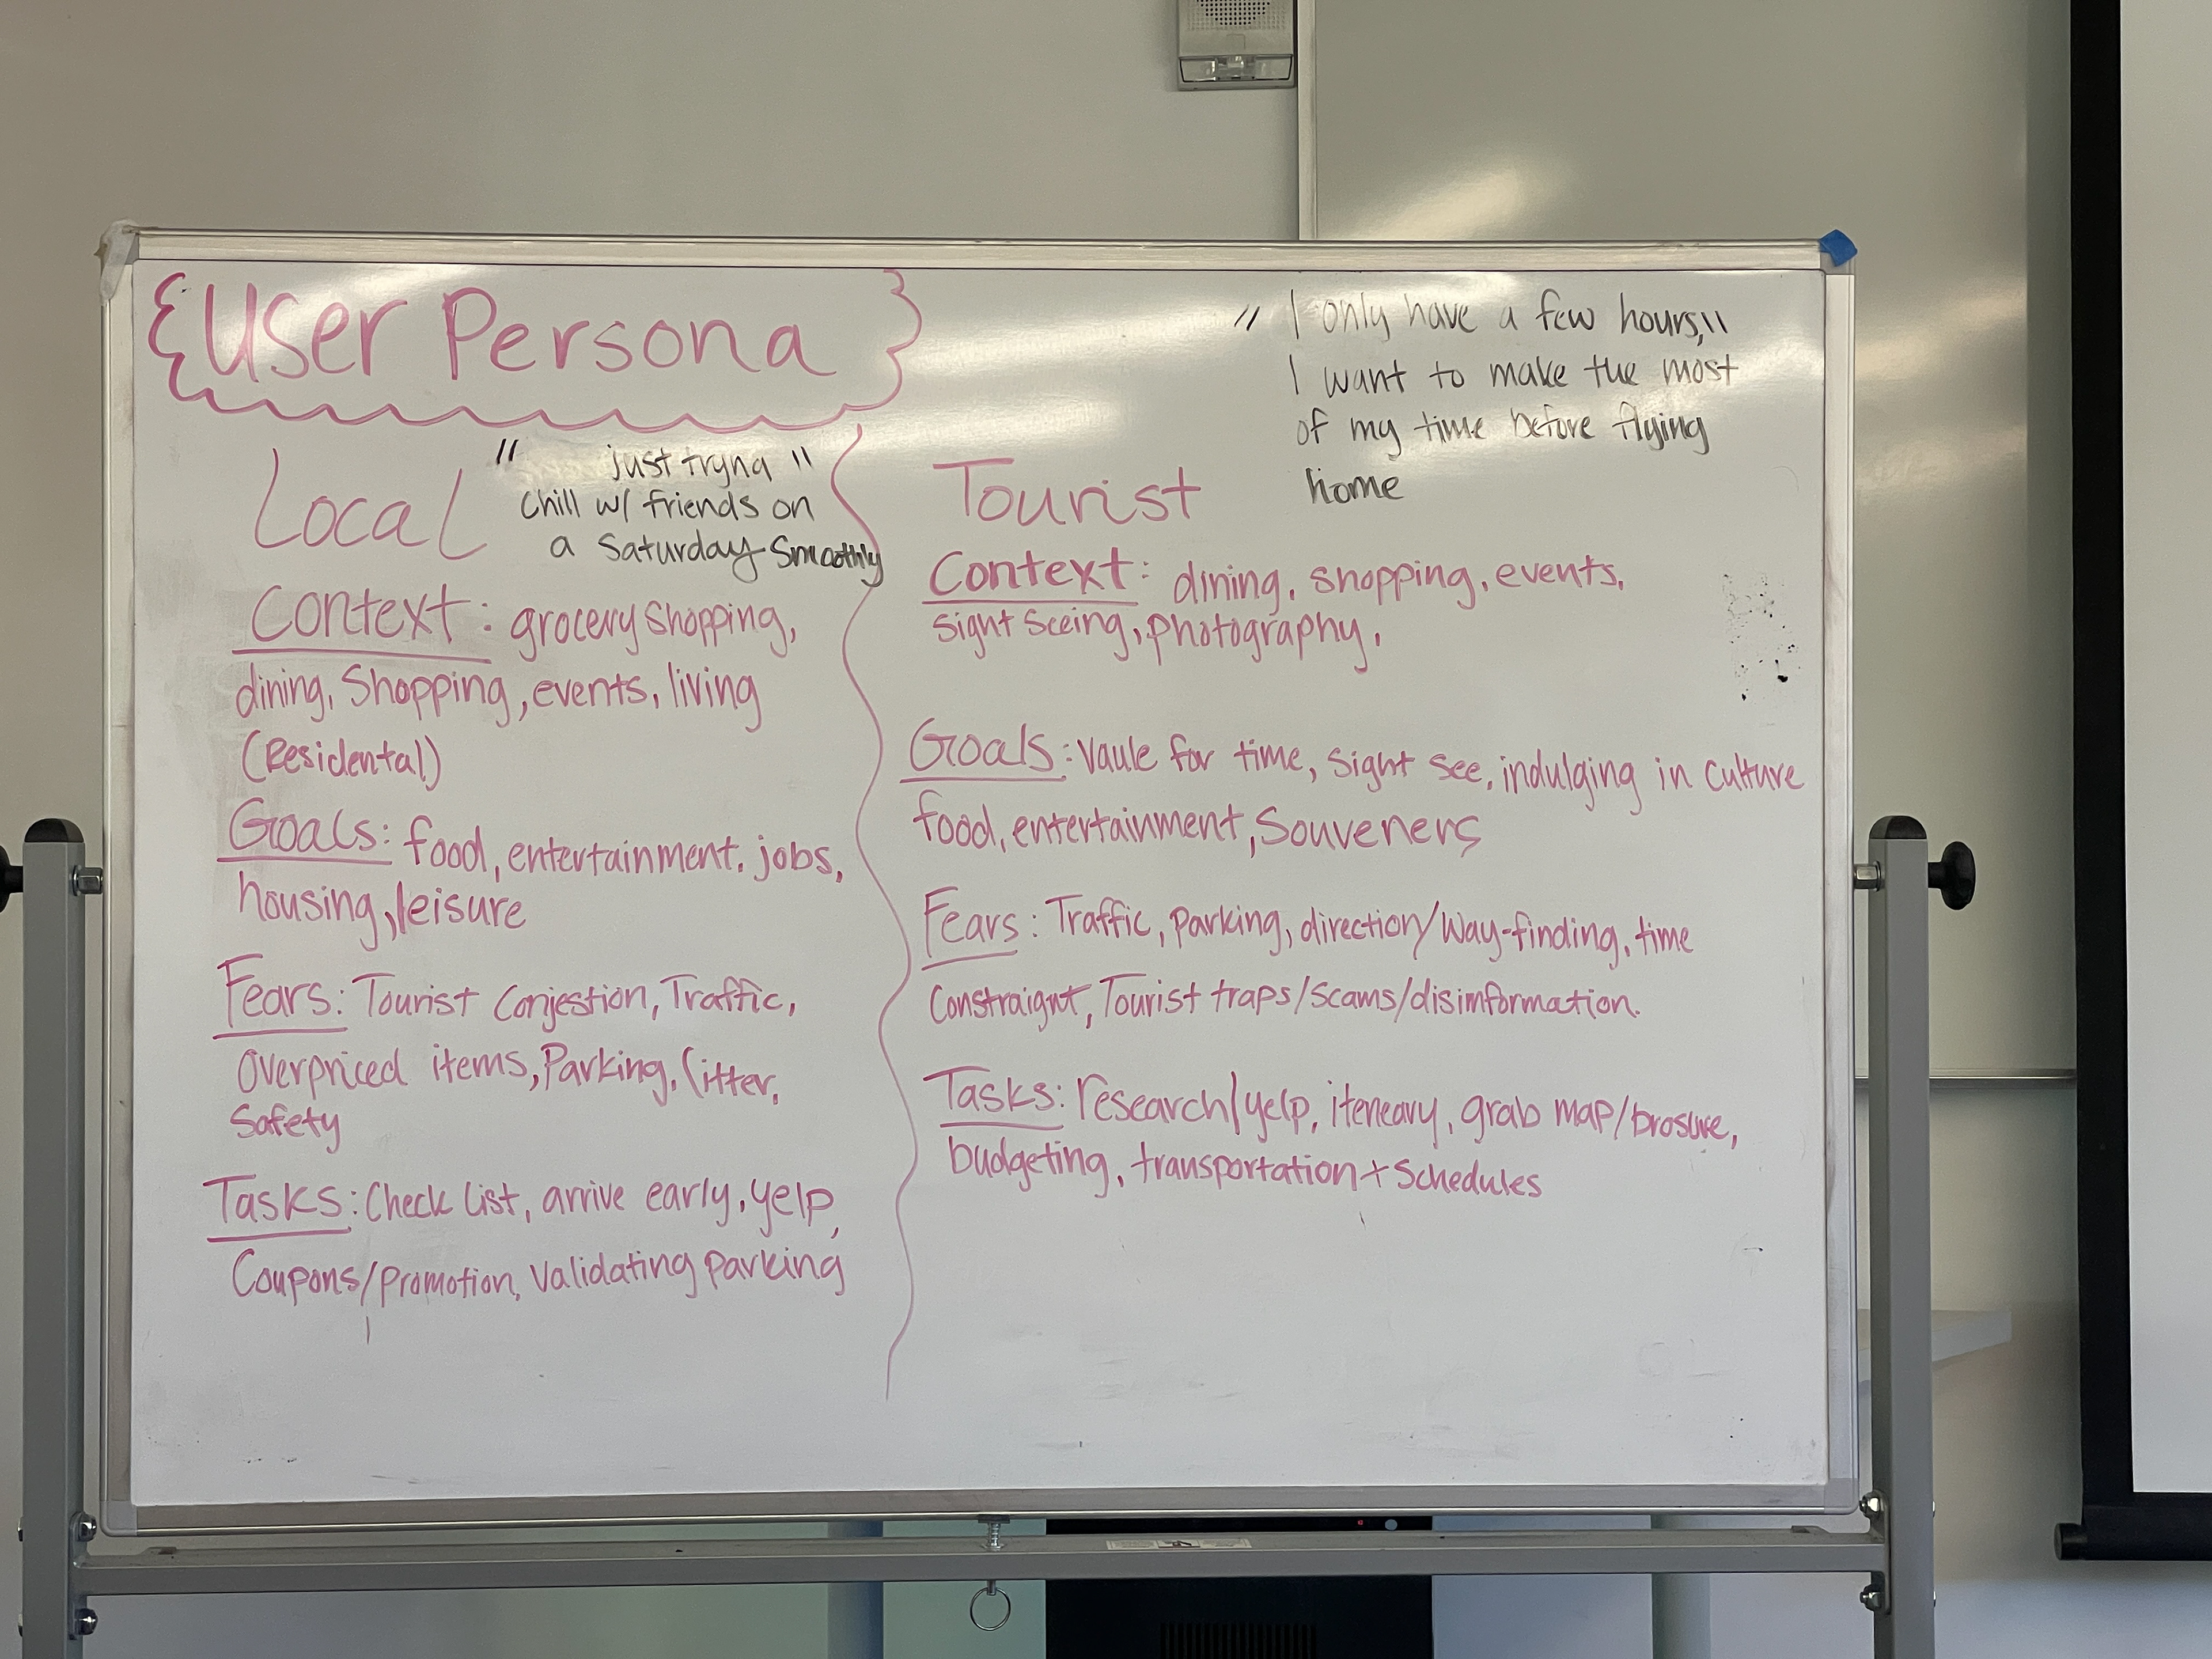 {User Persona}
Local
" just tryna "
Chill w/ friends on
a Saturday Smoothly
Context: grocery shopping,
dining, Shopping, events, living
(Residental)
Goals: food, entertainment, jobs,
housing, leisure
Fears: Tourist Conjestion, Traffic,
Overpriced items, Parking, litter,
Safety
Tasks: Check list, arrive early, yelp,
Coupons/promotion, Validating parking
" I only have a few hours, "
I want to make the most
of my time before flying
home
Tourist
Context: dining, shopping, events,
sight seeing, photography,
Goals: Vaule for time, Sight see, indulging in culture
food, entertainment, Souveners
Fears: Traffic, parking, direction/way-finding, time
Constraignt, Tourist traps/scams/disimformation.
Tasks: research/yelp, iteneary, grab map/brosure,
budgeting, transportation + Schedules